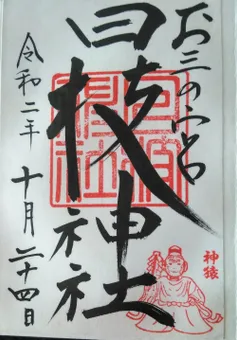 お三の宮
日枝神社
令和二年 十月二十四日
日枝神社
神猿